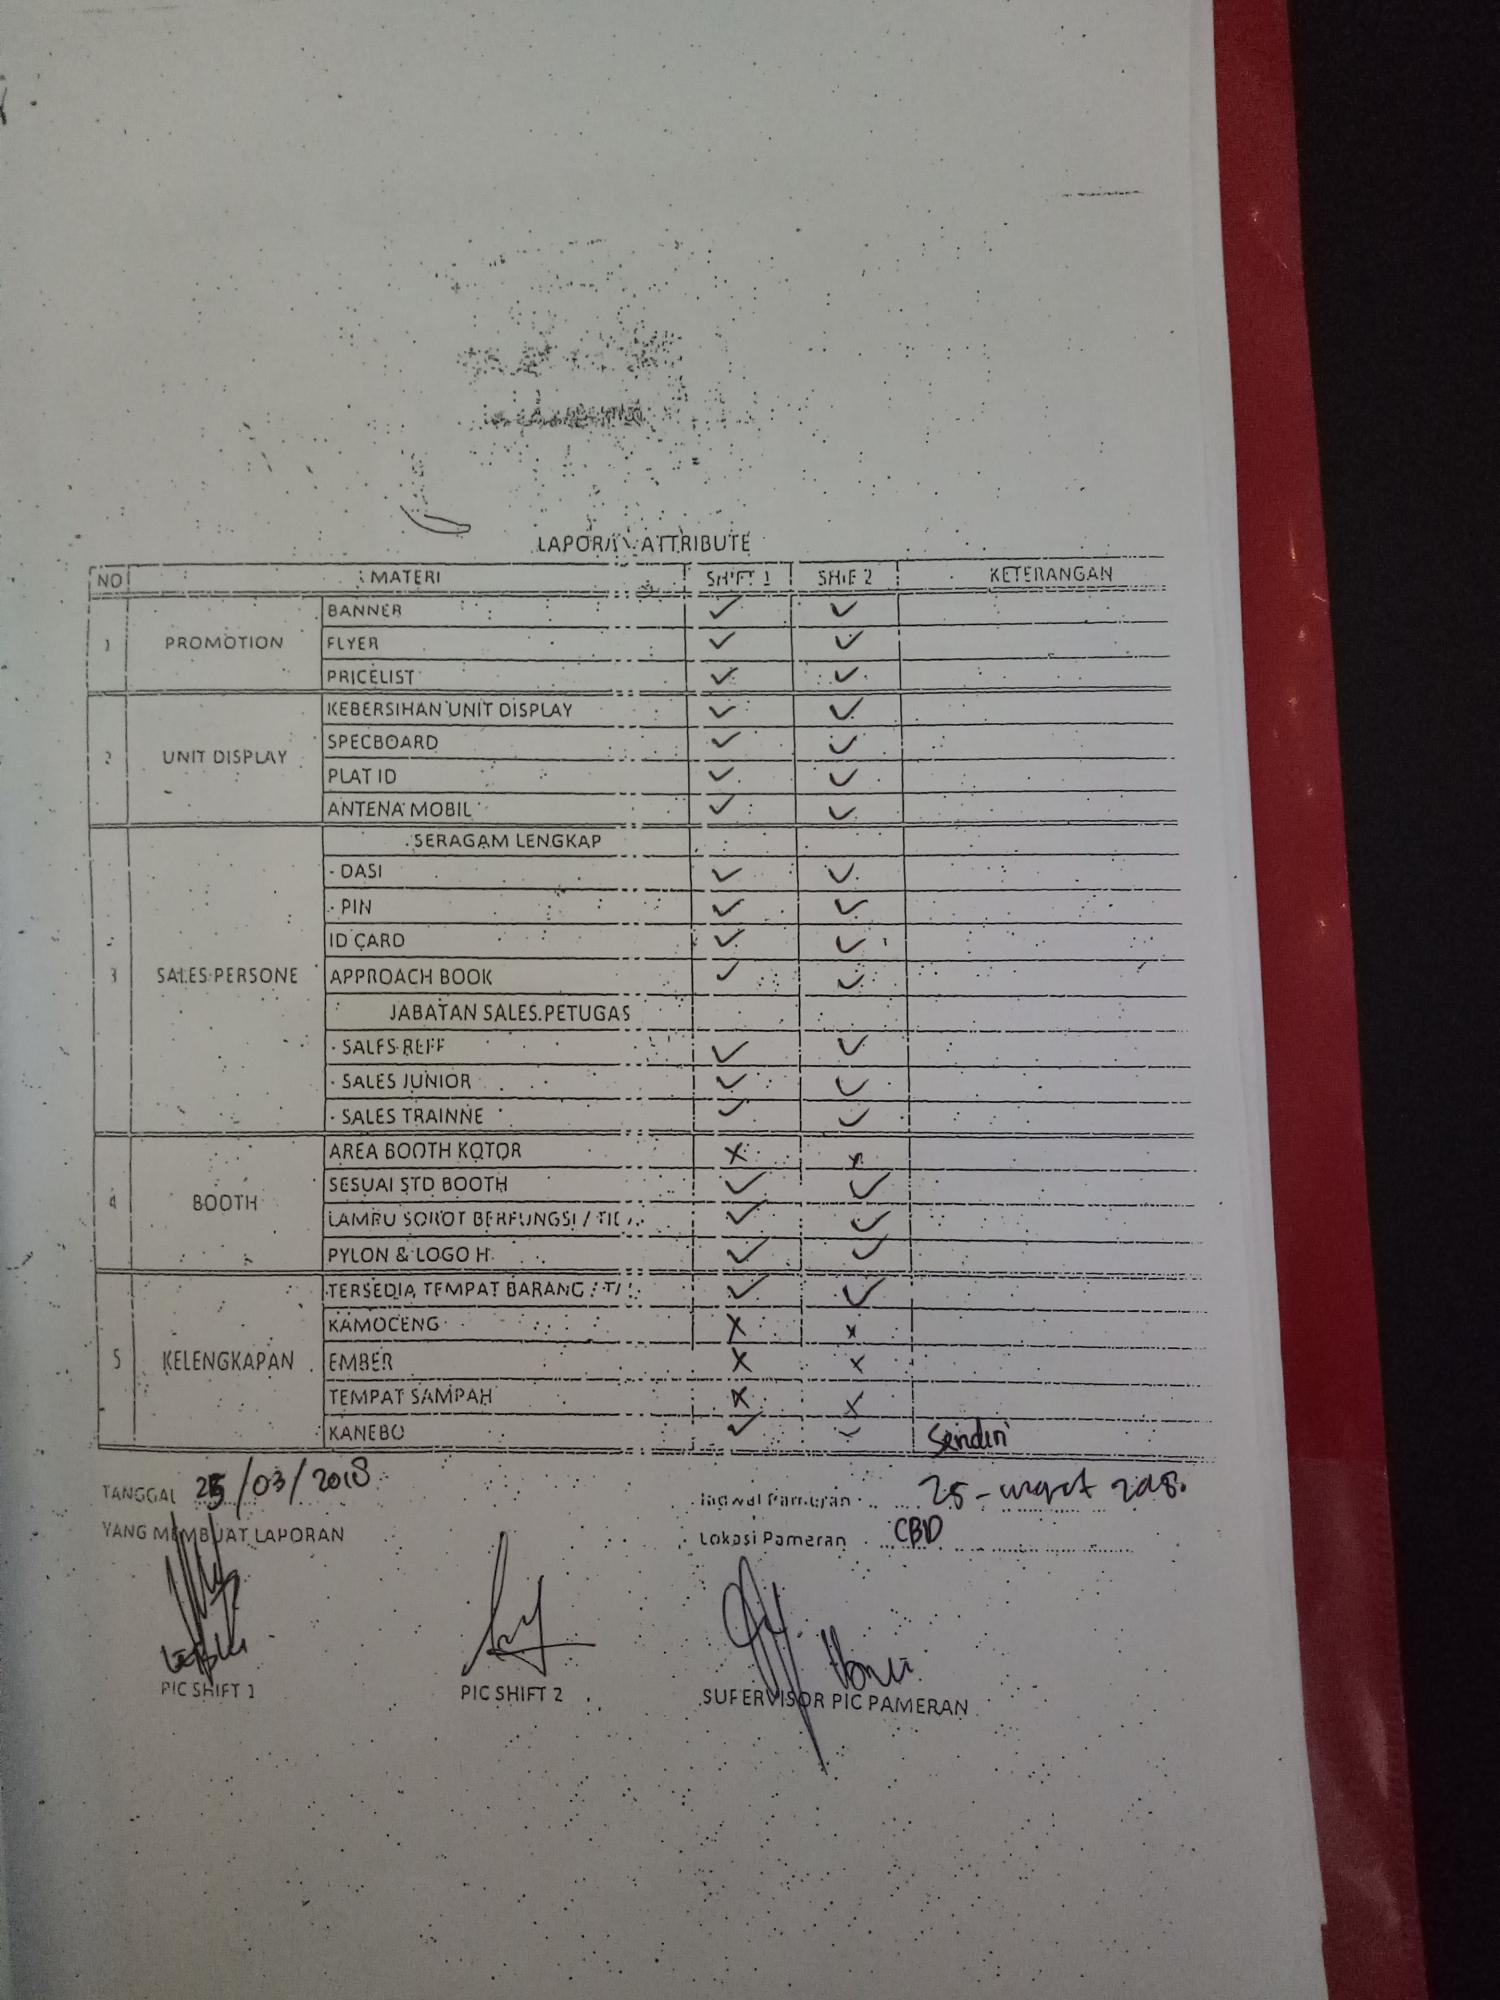 LAPORAN ATTRIBUTE
NO MATERI SHIFT 1 SHIF 2 KETERANGAN
1 PROMOTION BANNER ✓ ✓
FLYER ✓ ✓
PRICELIST ✓ ✓
2 UNIT DISPLAY KEBERSIHAN UNIT DISPLAY ✓ ✓
SPECBOARD ✓ ✓
PLAT ID ✓ ✓
ANTENA MOBIL ✓ ✓
3 SALES PERSONE SERAGAM LENGKAP
- DASI ✓ ✓
- PIN ✓ ✓
ID CARD ✓ ✓
APPROACH BOOK ✓ ✓
JABATAN SALES PETUGAS
- SALES REFF ✓ ✓
- SALES JUNIOR ✓ ✓
- SALES TRAINNE ✓ ✓
4 BOOTH AREA BOOTH KOTOR X X
SESUAI STD BOOTH ✓ ✓
LAMPU SOROT BERFUNGSI / ✓ ✓
PYLON & LOGO H ✓ ✓
5 KELENGKAPAN TERSEDIA TEMPAT BARANG / ✓ ✓
KAMOCENG X X
EMBER X X
TEMPAT SAMPAH X X
KANEBO ✓ ✓ Sendiri
TANGGAL 25/03/2018 Jadwal Pameran 25 - maret 2018.
YANG MEMBUAT LAPORAN Lokasi Pameran CBD
PIC SHIFT 1 PIC SHIFT 2 SUPERVISOR PIC PAMERAN